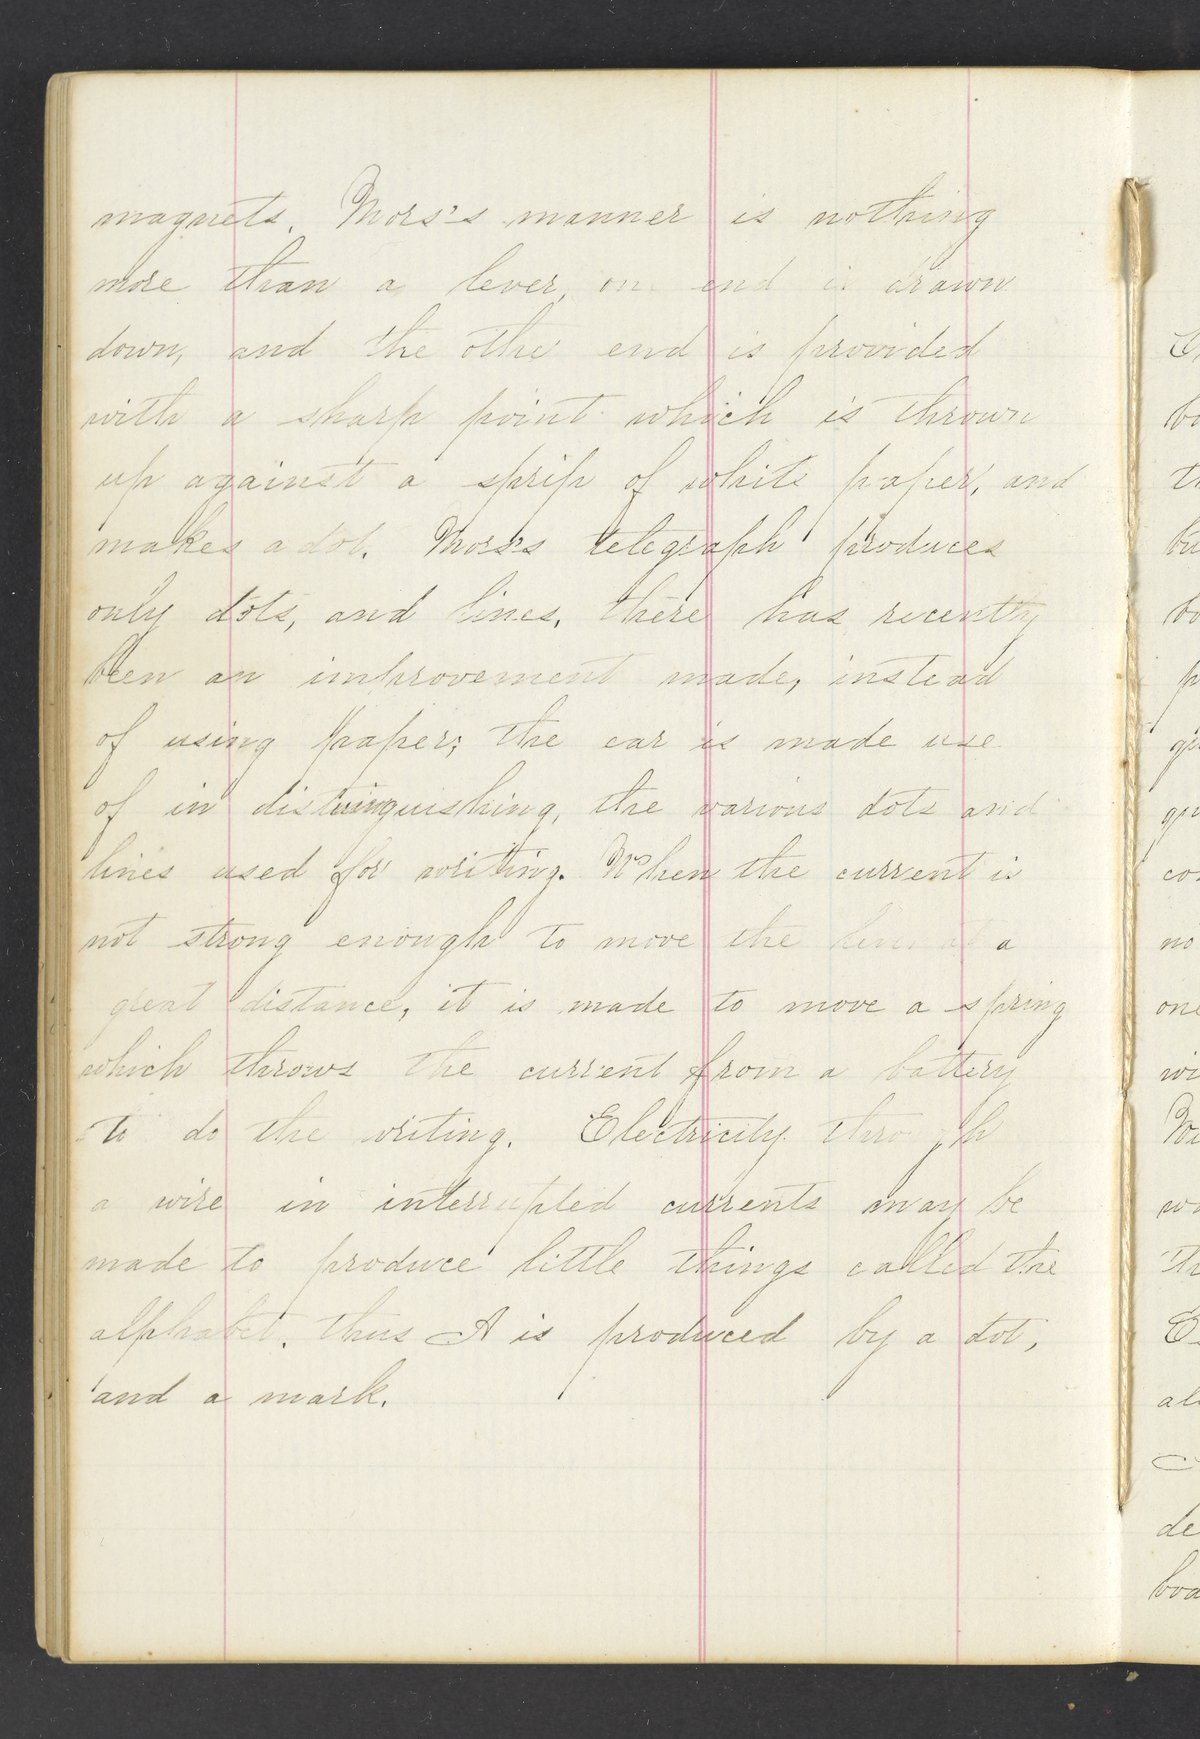 magnets. Mors's manner is nothing
more than a lever, on end is drawn
down, and the othe end is provided
with a sharp point which is thrown
up against a sprip of white paper, and
makes a dot. Mors's telegraph produces
only dots, and lines, there has recently
been an improvement made, instead
of using paper; the ear is made use
of in distuinguishing, the various dots and
lines used for writing. When the current is
not strong enough to move the lever at a
great distance, it is made to move a spring
which throws the current from a battery
to do the writing. Electricity through
a wire in interrupted currents may be
made to produce little things called the
alphabet. thus A is produced by a dot,
and a mark.